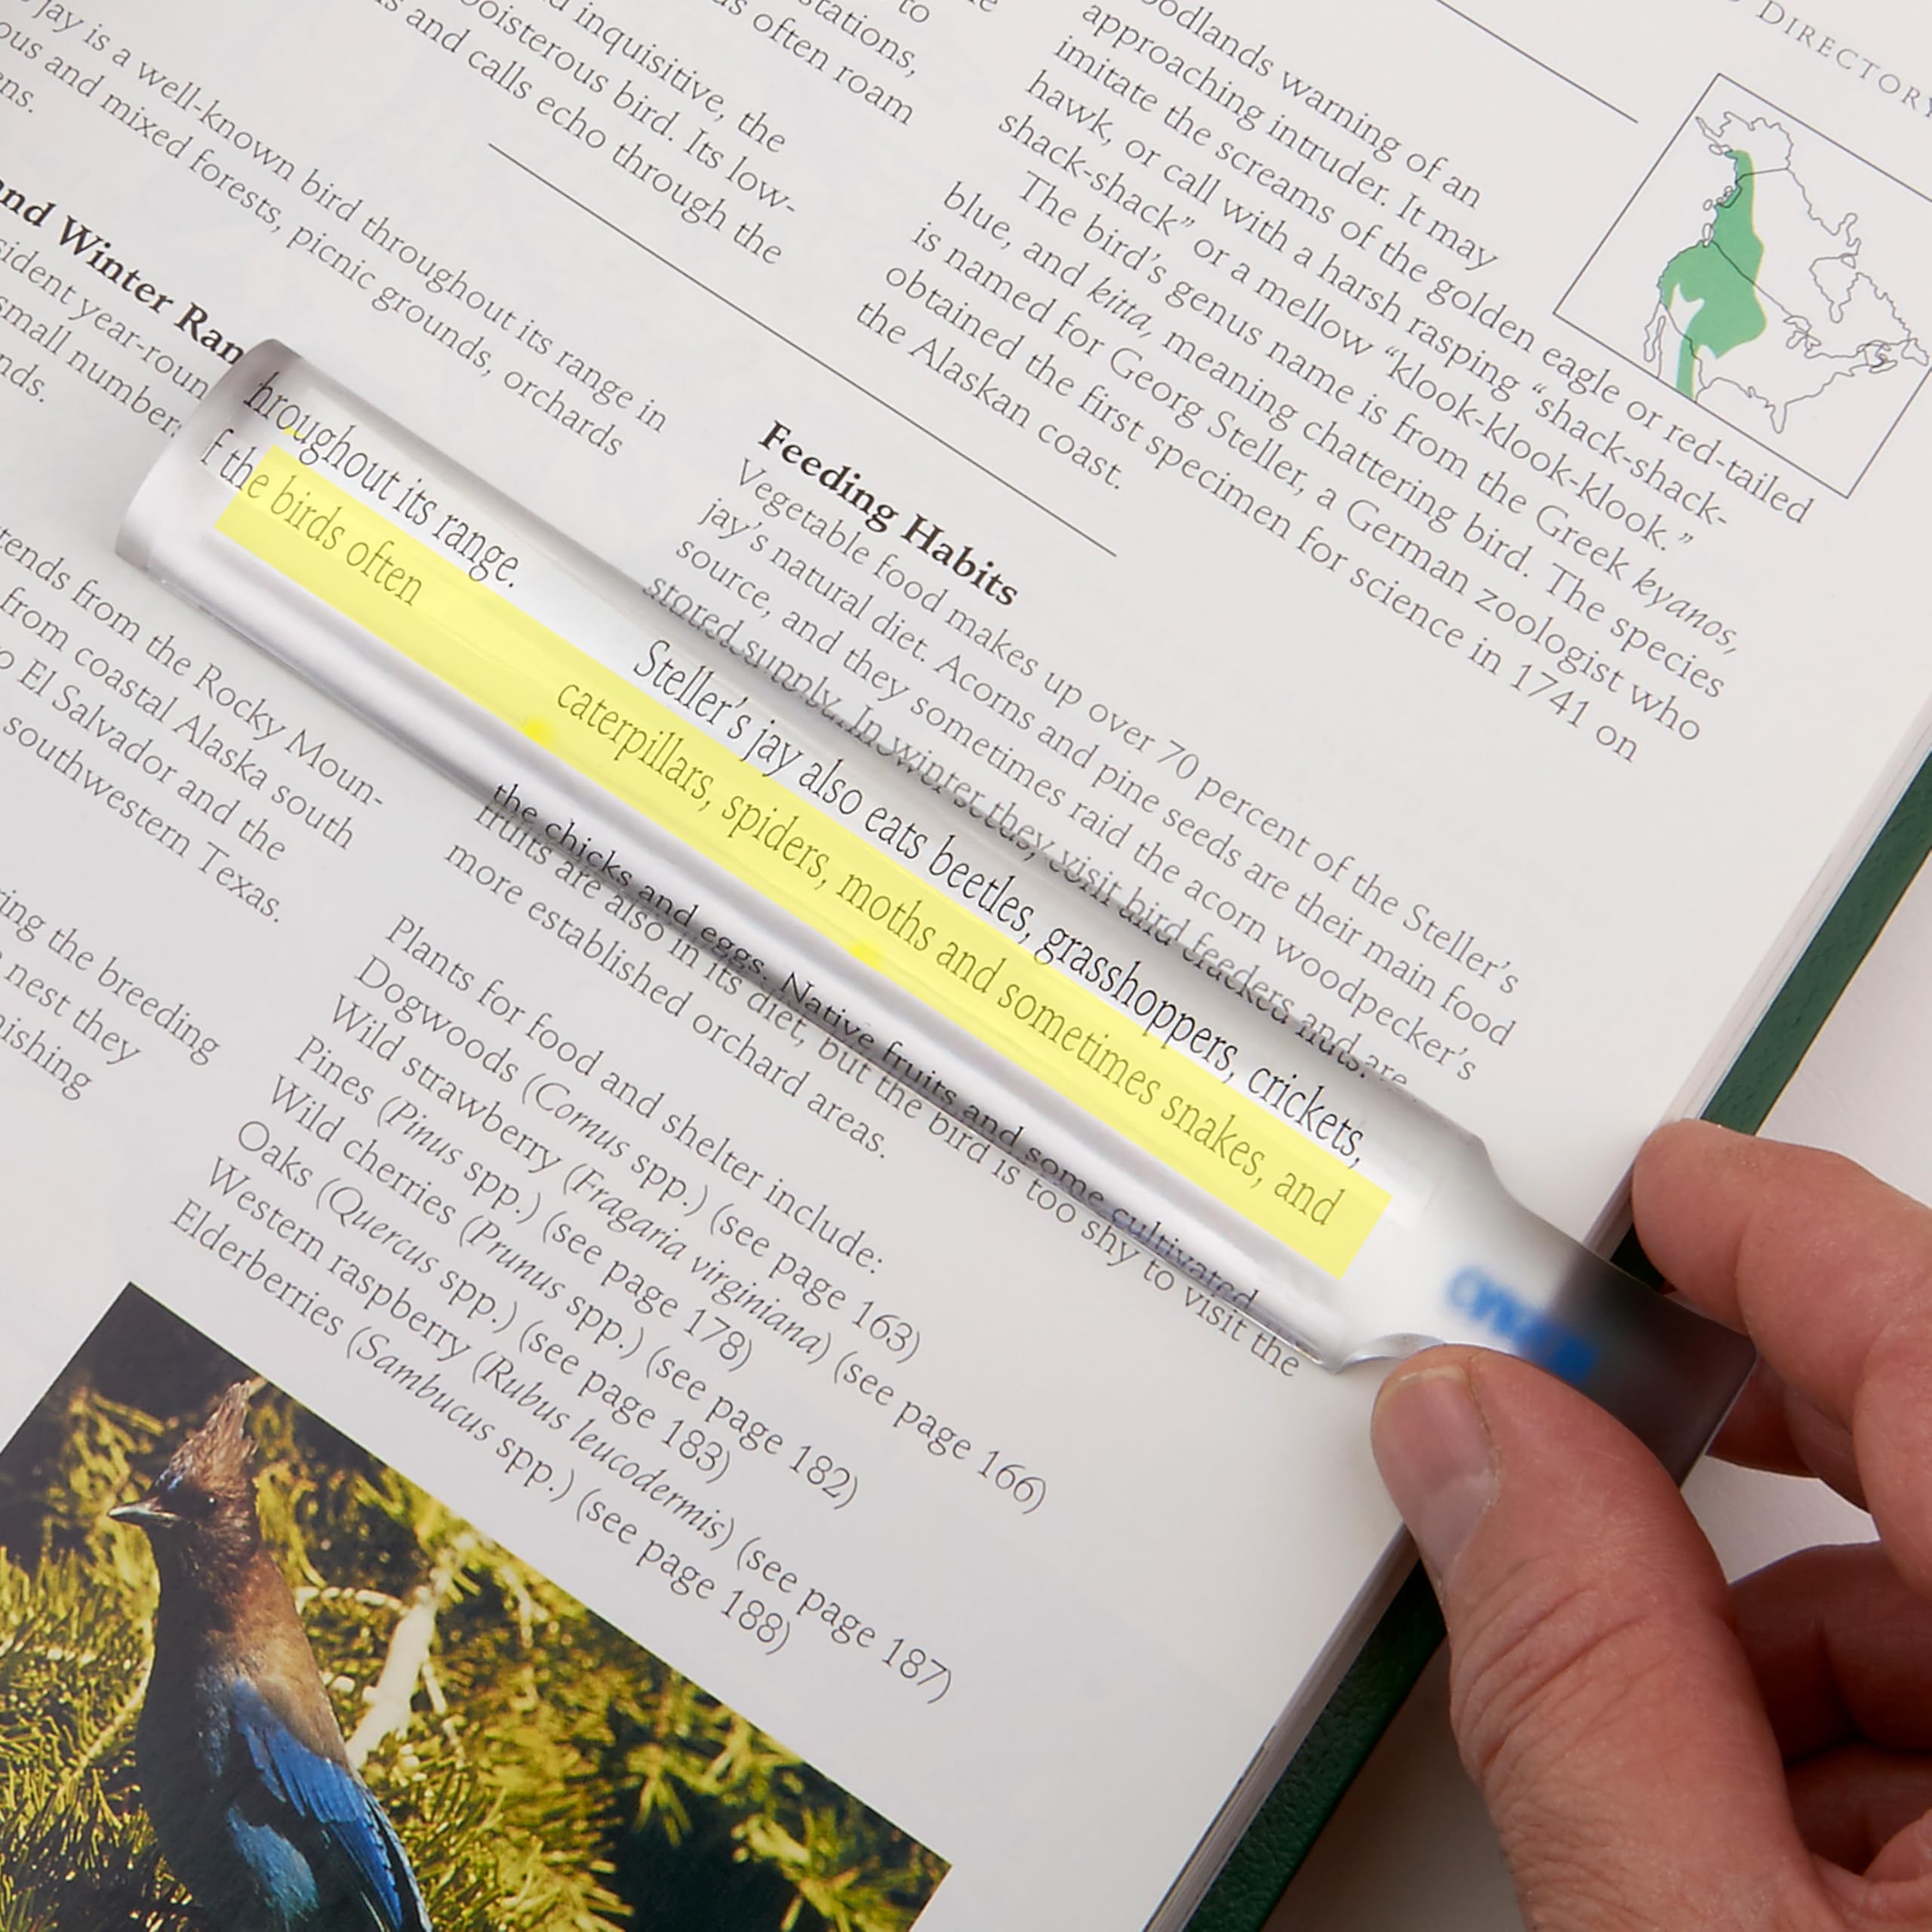 DIRECTORY
jay is a well-known bird throughout its range in
ous and mixed forests, picnic grounds, orchards
ens.
and Winter Ran
sident year-roun
small number
nds.
tends from the Rocky Moun-
from coastal Alaska south
o El Salvador and the
southwestern Texas.
ring the breeding
nest they
nishing
d inquisitive, the
boisterous bird. Its low-
s and calls echo through the
stations, to
s often roam
hroughout its range.
f the birds often
oodlands warning of an
approaching intruder. It may
imitate the screams of the golden eagle or red-tailed
hawk, or call with a harsh rasping “shack-shack-
shack-shack” or a mellow “klook-klook-klook.”
The bird’s genus name is from the Greek kyanos,
blue, and kitta, meaning chattering bird. The species
is named for Georg Steller, a German zoologist who
obtained the first specimen for science in 1741 on
the Alaskan coast.
Feeding Habits
Vegetable food makes up over 70 percent of the Steller’s
jay’s natural diet. Acorns and pine seeds are their main food
source, and they sometimes raid the acorn woodpecker’s
stored supply. In winter they visit bird feeders and are
nuts.
Steller’s jay also eats beetles, grasshoppers, crickets,
caterpillars, spiders, moths and sometimes snakes, and
the chicks and eggs. Native fruits and some cultivated
fruits are also in its diet, but the bird is too shy to visit the
more established orchard areas.
Plants for food and shelter include:
Dogwoods (Cornus spp.) (see page 163)
Wild strawberry (Fragaria virginiana) (see page 166)
Pines (Pinus spp.) (see page 178)
Wild cherries (Prunus spp.) (see page 182)
Oaks (Quercus spp.) (see page 183)
Western raspberry (Rubus leucodermis) (see page 187)
Elderberries (Sambucus spp.) (see page 188)